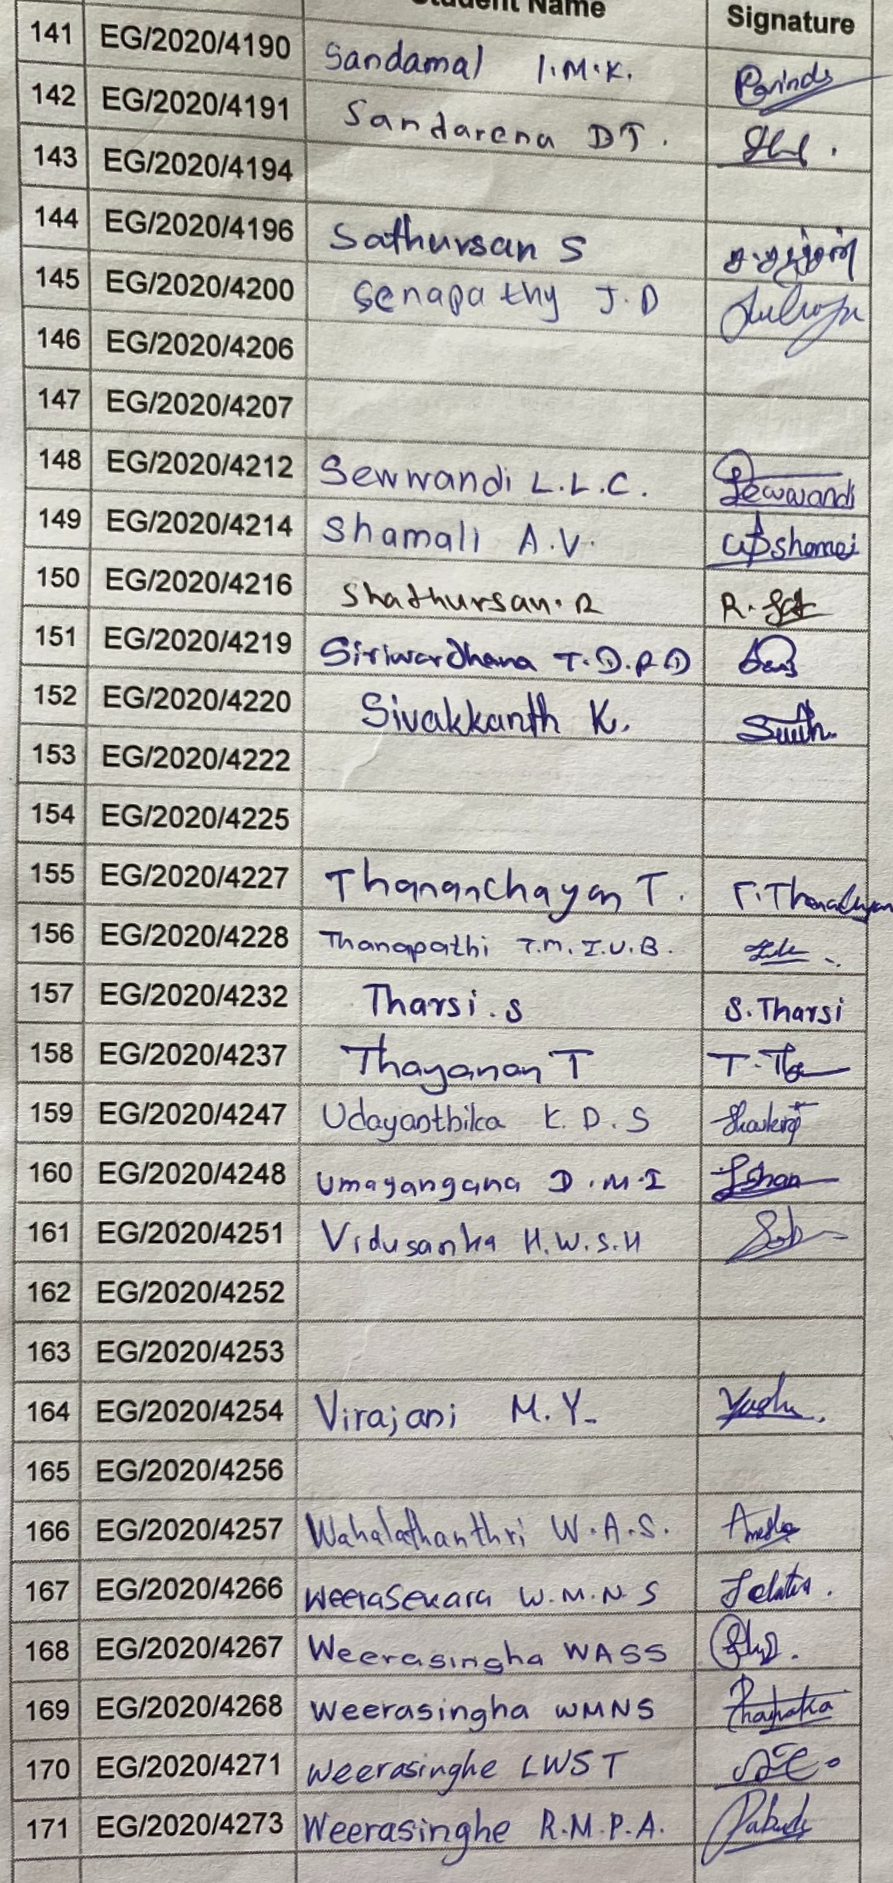 Student Name Signature
141 EG/2020/4190 Sandamal I.M.K.
142 EG/2020/4191 Sandarena DT.
143 EG/2020/4194
144 EG/2020/4196 Sathursan S
145 EG/2020/4200 Senapathy J.D
146 EG/2020/4206
147 EG/2020/4207
148 EG/2020/4212 Sewwandi L.L.C. Sewwandi
149 EG/2020/4214 Shamali A.V.
150 EG/2020/4216 Shathursan.R
151 EG/2020/4219 Siriwardhana T.D.R.D
152 EG/2020/4220 Sivakkanth K.
153 EG/2020/4222
154 EG/2020/4225
155 EG/2020/4227 Thananchayan T.
156 EG/2020/4228 Thanapathi T.M.I.U.B.
157 EG/2020/4232 Tharsi.S S.Tharsi
158 EG/2020/4237 Thayanan T
159 EG/2020/4247 Udayanthika K.D.S
160 EG/2020/4248 Umayangana D.M.I
161 EG/2020/4251 Vidusanka H.W.S.H
162 EG/2020/4252
163 EG/2020/4253
164 EG/2020/4254 Virajani M.Y.
165 EG/2020/4256
166 EG/2020/4257 Wahalathanthri W.A.S.
167 EG/2020/4266 Weerasekara W.M.N.S
168 EG/2020/4267 Weerasingha WASS
169 EG/2020/4268 Weerasingha WMNS
170 EG/2020/4271 Weerasinghe LWST
171 EG/2020/4273 Weerasinghe R.M.P.A.